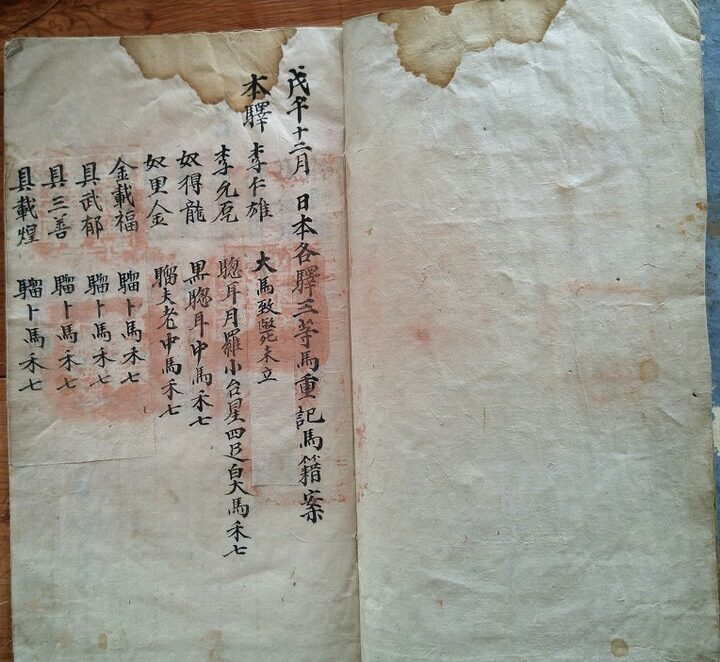 戊午十二月 日本各驛三等馬重記馬籍案
本驛 李仁雄 大馬致斃未立
李允辰 騘耳月羅小台星四足白大馬禾七
奴得龍 黑騘耳中馬禾七
奴更金 騮夫老中馬禾七
金載福 騮卜馬禾七
具武郁 騮卜馬禾七
具三善 騮卜馬禾七
具載煌 騮卜馬禾七